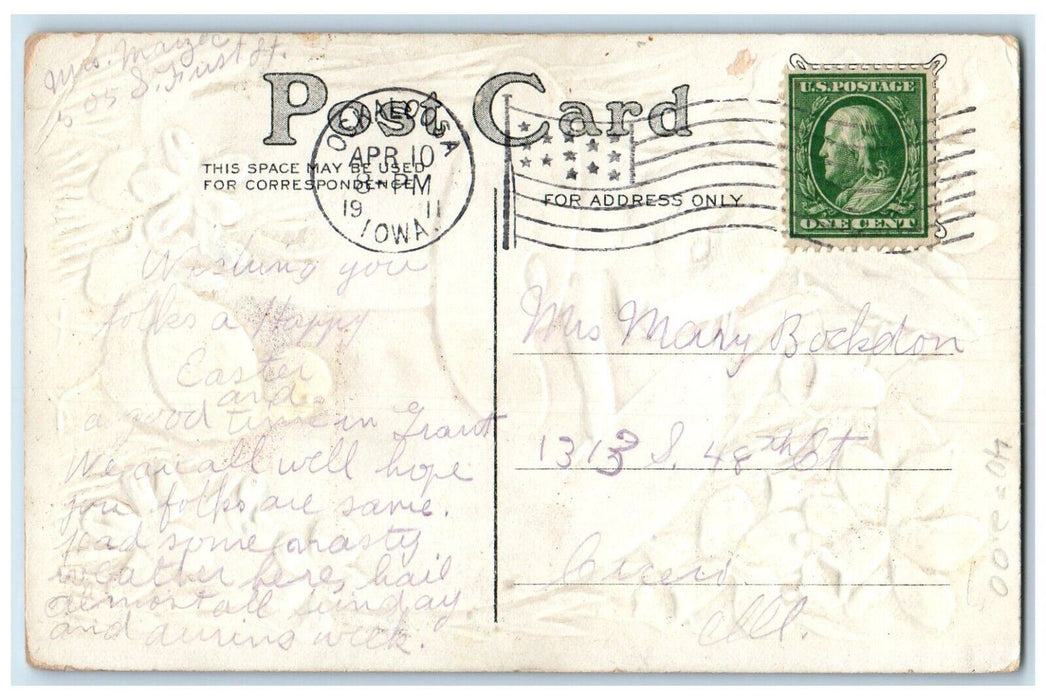 Mrs. Maizer
505 S. First St.
Post Card
THIS SPACE MAY BE USED
FOR CORRESPONDENCE
OSKALOOSA
APR 10
8 - PM
19 11
IOWA
FOR ADDRESS ONLY
U.S. POSTAGE
ONE CENT
Wishing you
folks a Happy
Easter
and
a good time in Grant
We are all well hope
you folks are same.
had some nasty
weather here, hail
almost all Sunday
and during week.
Mrs Mary Bockdon
1313 S. 48th Ct
Cicero
Ill.
40-200